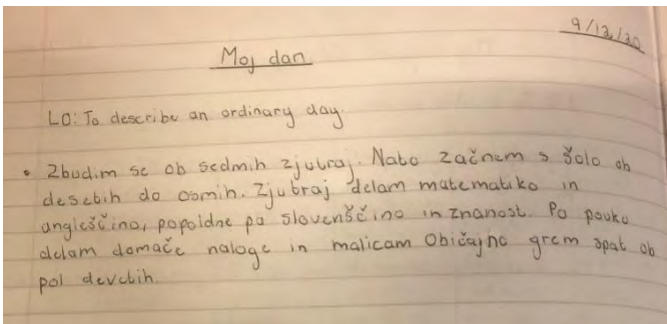 9/12/20
Moj dan
LO: To describe an ordinary day.
• Zbudim se ob sedmih zjutraj. Nato začnem s šolo ob
desetih do osmih. Zjutraj delam matematiko in
angleščino, popoldne pa slovenščino in znanost. Po pouku
delam domače naloge in malicam Običajno grem spat ob
pol devetih.